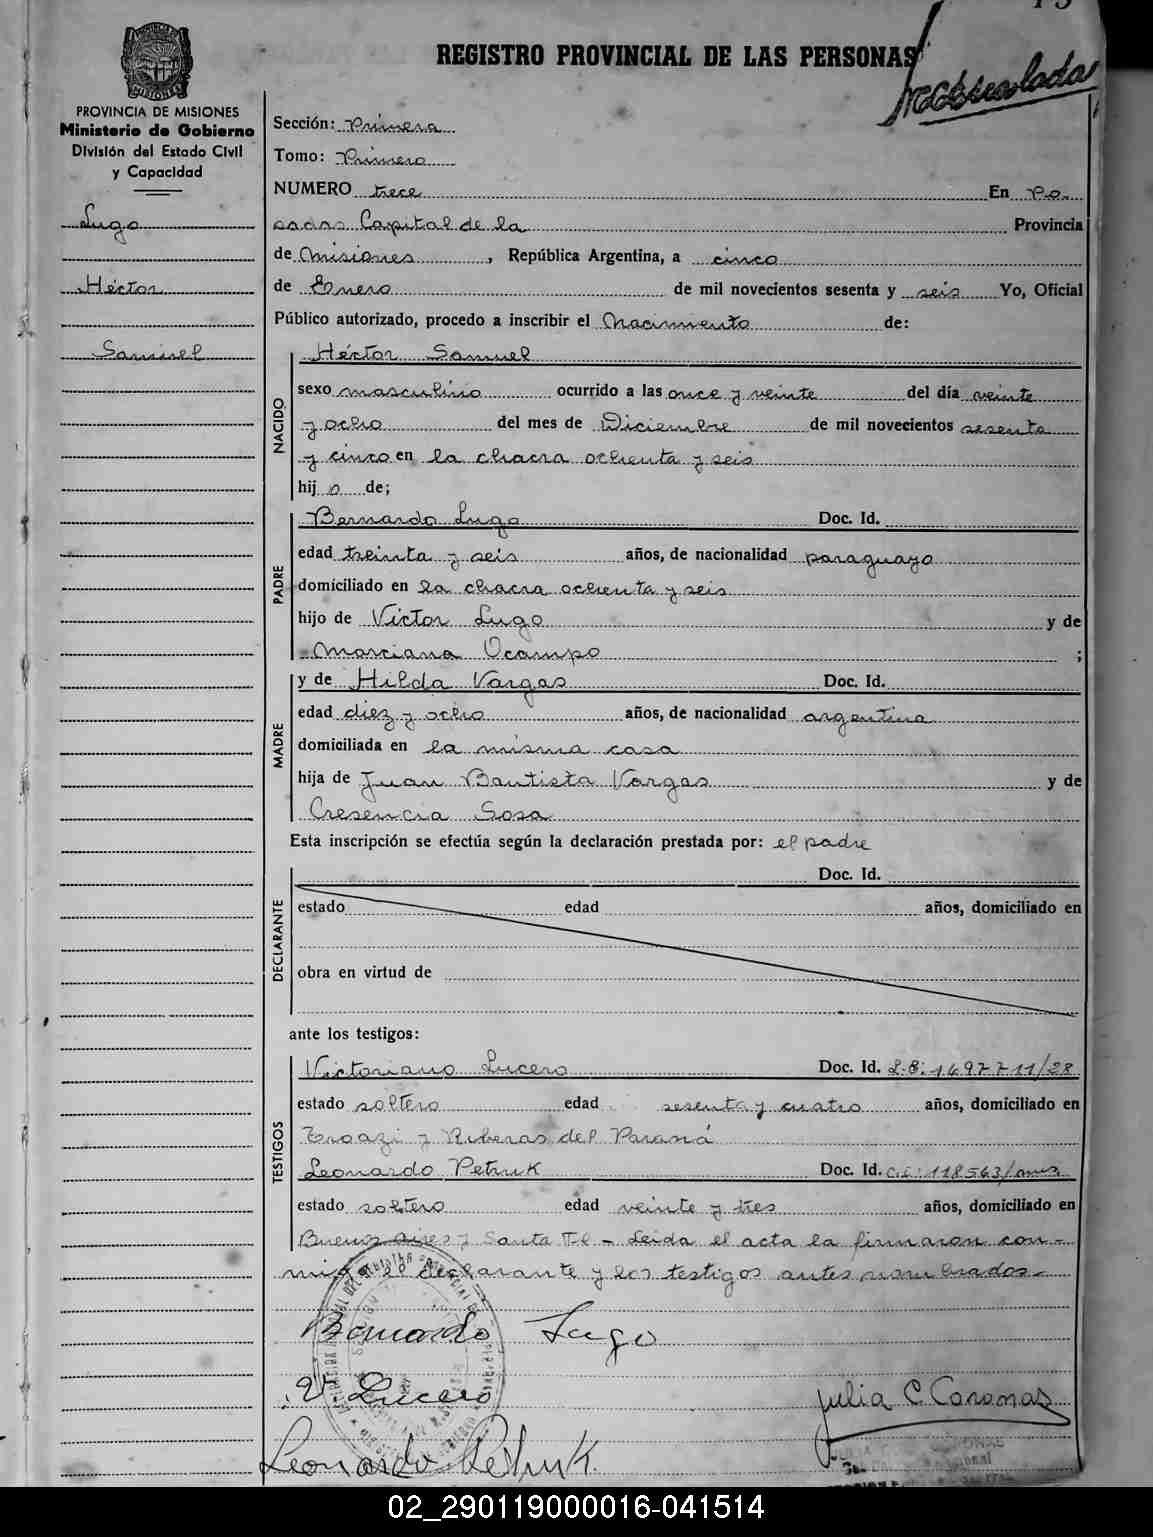 REGISTRO PROVINCIAL DE LAS PERSONAS
PROVINCIA DE MISIONES
Ministerio de Gobierno
División del Estado Civil
y Capacidad
Lugo
Héctor
Samuel
Sección: Primera
Tomo: Primero
NUMERO trece En Po-
sadas Capital de la Provincia
de Misiones, República Argentina, a cinco
de Enero de mil novecientos sesenta y seis Yo, Oficial
Público autorizado, procedo a inscribir el Nacimiento de:
NACIDO
Héctor Samuel
sexo masculino ocurrido a las once y veinte del día veinte
y ocho del mes de Diciembre de mil novecientos sesenta
y cinco en la chacra ochenta y seis
hijo de;
PADRE
Bernardo Lugo Doc. Id.
edad treinta y seis años, de nacionalidad paraguayo
domiciliado en la chacra ochenta y seis
hijo de Victor Lugo y de
Marciana Ocampo ;
MADRE
y de Hilda Vargas Doc. Id.
edad diez y ocho años, de nacionalidad argentina
domiciliada en la misma casa
hija de Juan Bautista Vargas y de
Cresencia Sosa
Esta inscripción se efectúa según la declaración prestada por: el padre
DECLARANTE
Doc. Id.
estado edad años, domiciliado en
obra en virtud de
ante los testigos:
TESTIGOS
Victoriano Lucero Doc. Id. L.E: 1497711/28
estado soltero edad sesenta y cuatro años, domiciliado en
y Riberas del Paraná
Leonardo Petruk Doc. Id. C.I: 118563/mnes
estado soltero edad veinte y tres años, domiciliado en
Buenos aires y Santa Fé - Leida el acta la firmaron con-
migo el declarante y los testigos antes nombrados-
Bernardo Lugo
V. Lucero
Julia C. Coronas
Leonardo Petruk.
02_290119000016-041514